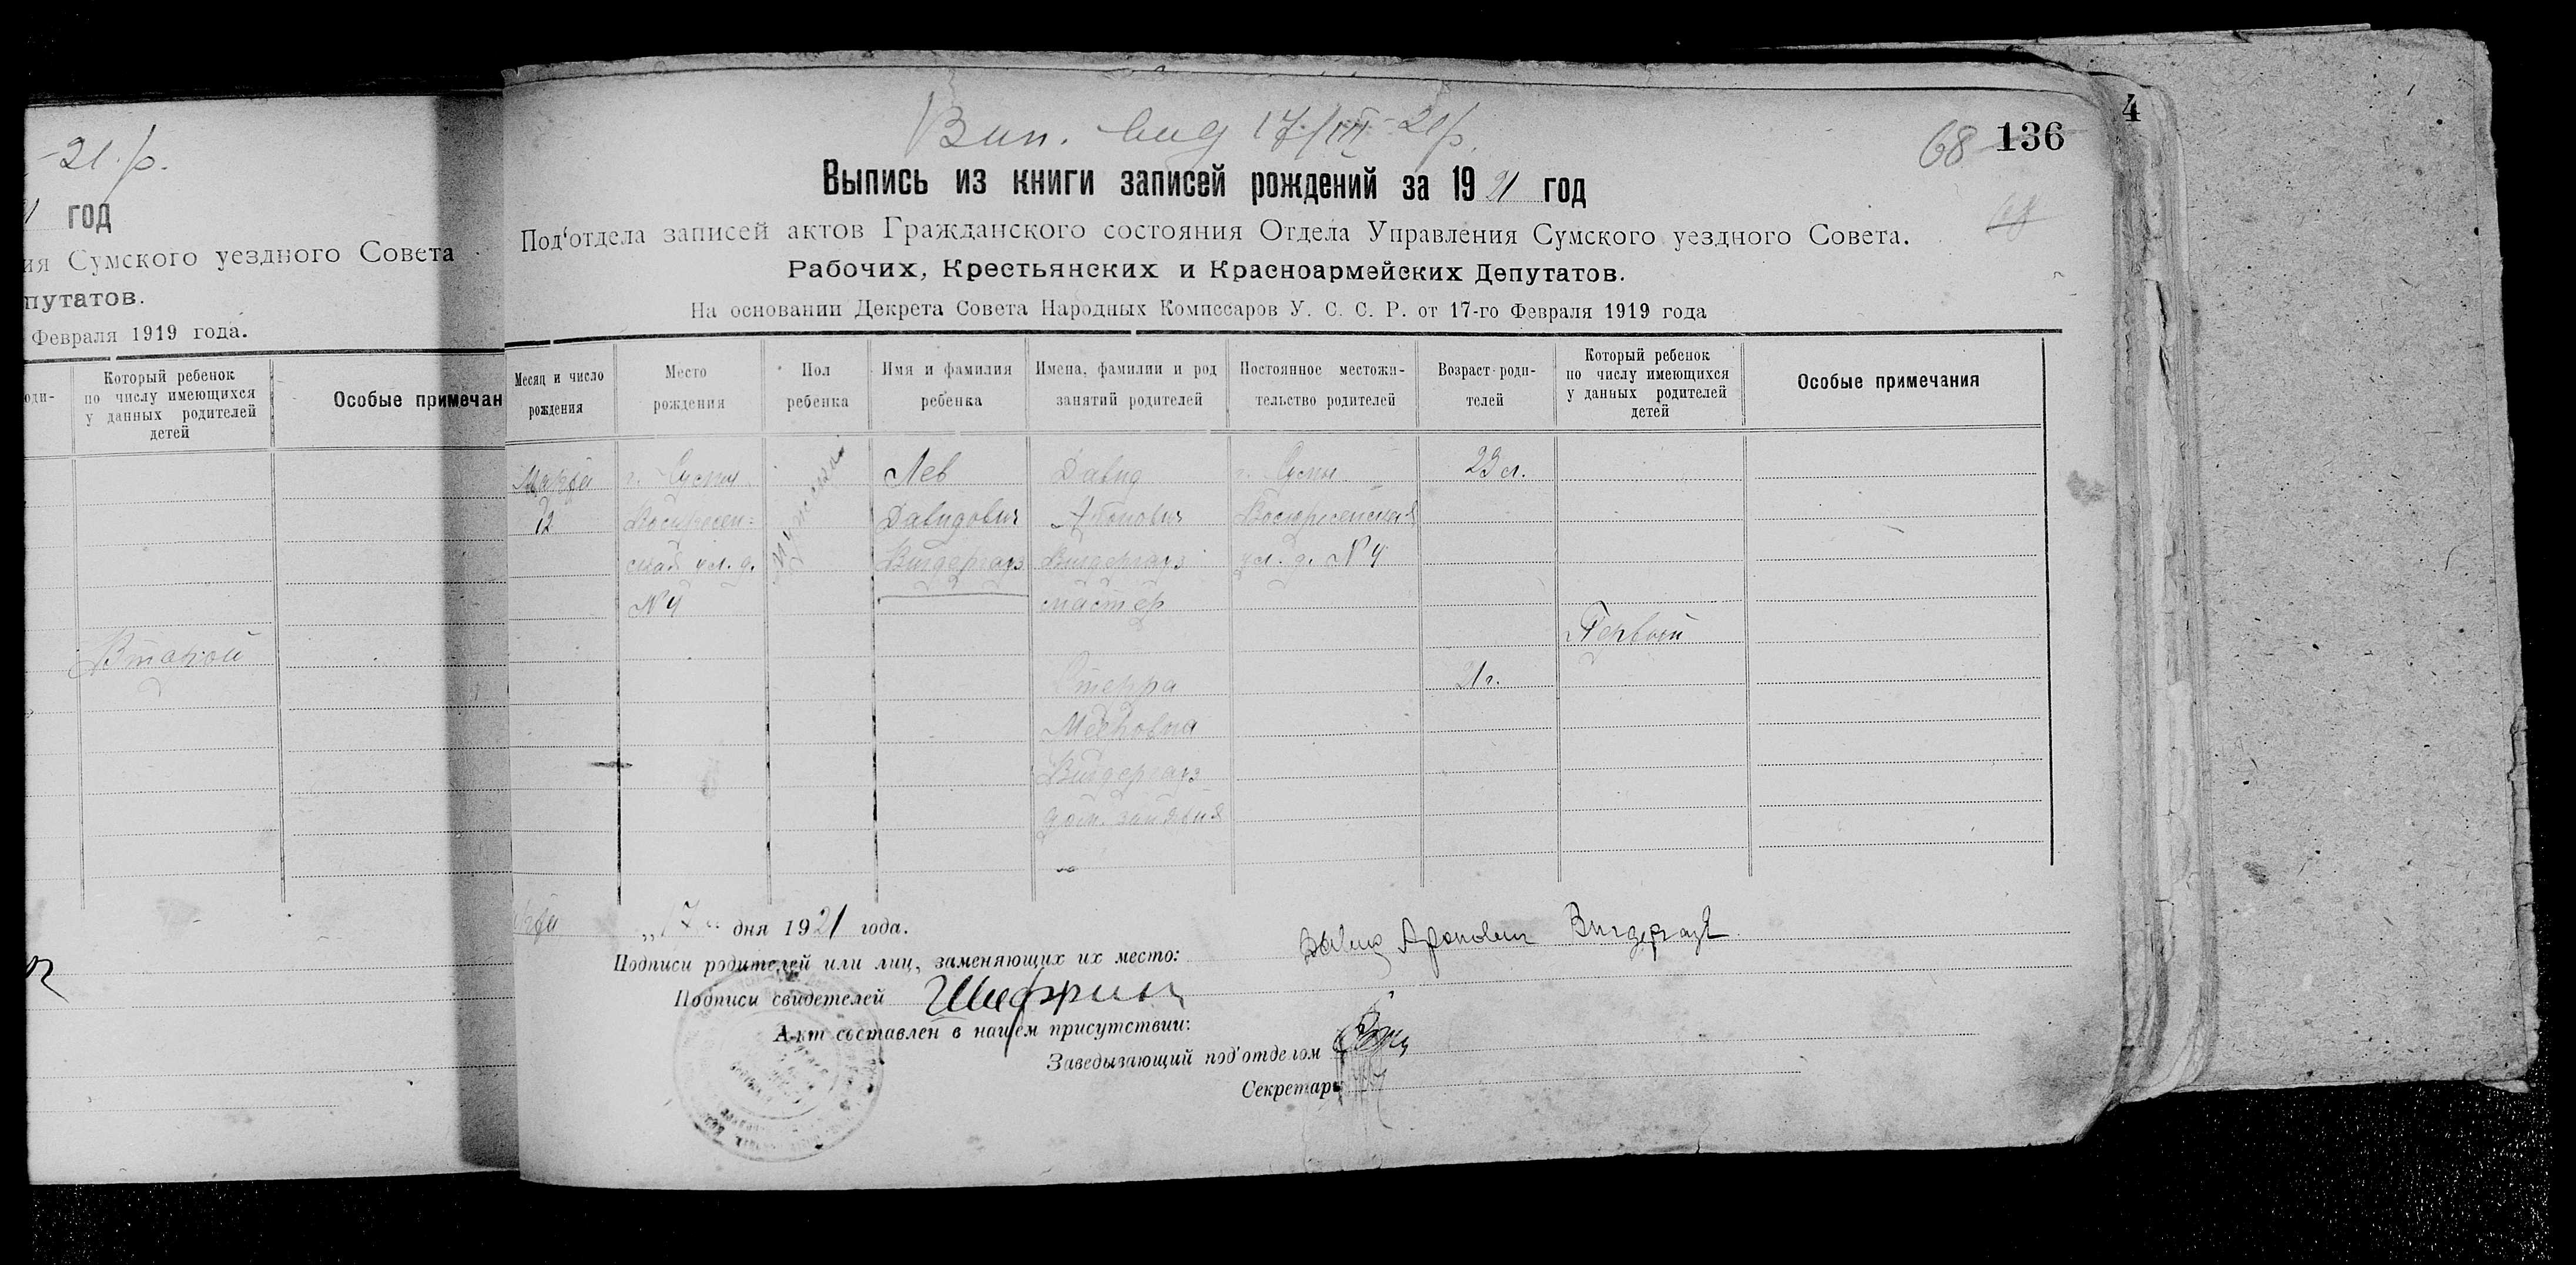 -21.р.
год
ия Сумского уездного Совета
путатов.
Февраля 1919 года.
оди-
Который ребенок
по числу имеющихся
у данных родителей
детей
Особые примечан
Второй
Вип. вид 17/III-21р.
68 136
4
Выпись из книги записей рождений за 1921 год
Под‘отдела записей актов Гражданского состояния Отдела Управления Сумского уездного Совета.
Рабочих, Крестьянских и Красноармейских Депутатов.
На основании Декрета Совета Народных Комиссаров У. С. С. Р. от 17-го Февраля 1919 года
Месяц и число
рождения
Место
рождения
Пол
ребенка
Имя и фамилия
ребенка
Имена, фамилии и род
занятий родителей
Постоянное местожи-
тельство родителей
Возраст роди-
телей
Который ребенок
по числу имеющихся
у данных родителей
детей
Особые примечания
Марта
12
г. Сумы
Воскресен-
ская ул. д.
№ 4
Лев
Давидович
Вигдергауз
Давид
Аронович
Вигдергауз
мастер
Мееровна
Вигдергауз
дом. занятия
г. Сумы
Воскресенская
ул. д. № 4
23 л.
21 г.
Первый
„17“ дня 1921 года.
Подписи родителей или лиц, заменяющих их место: Давид Аронович Вигдергауз
Подписи свидетелей Шифрин
Акт составлен в нашем присутствии:
Заведывающий под‘отделом
Секретарь